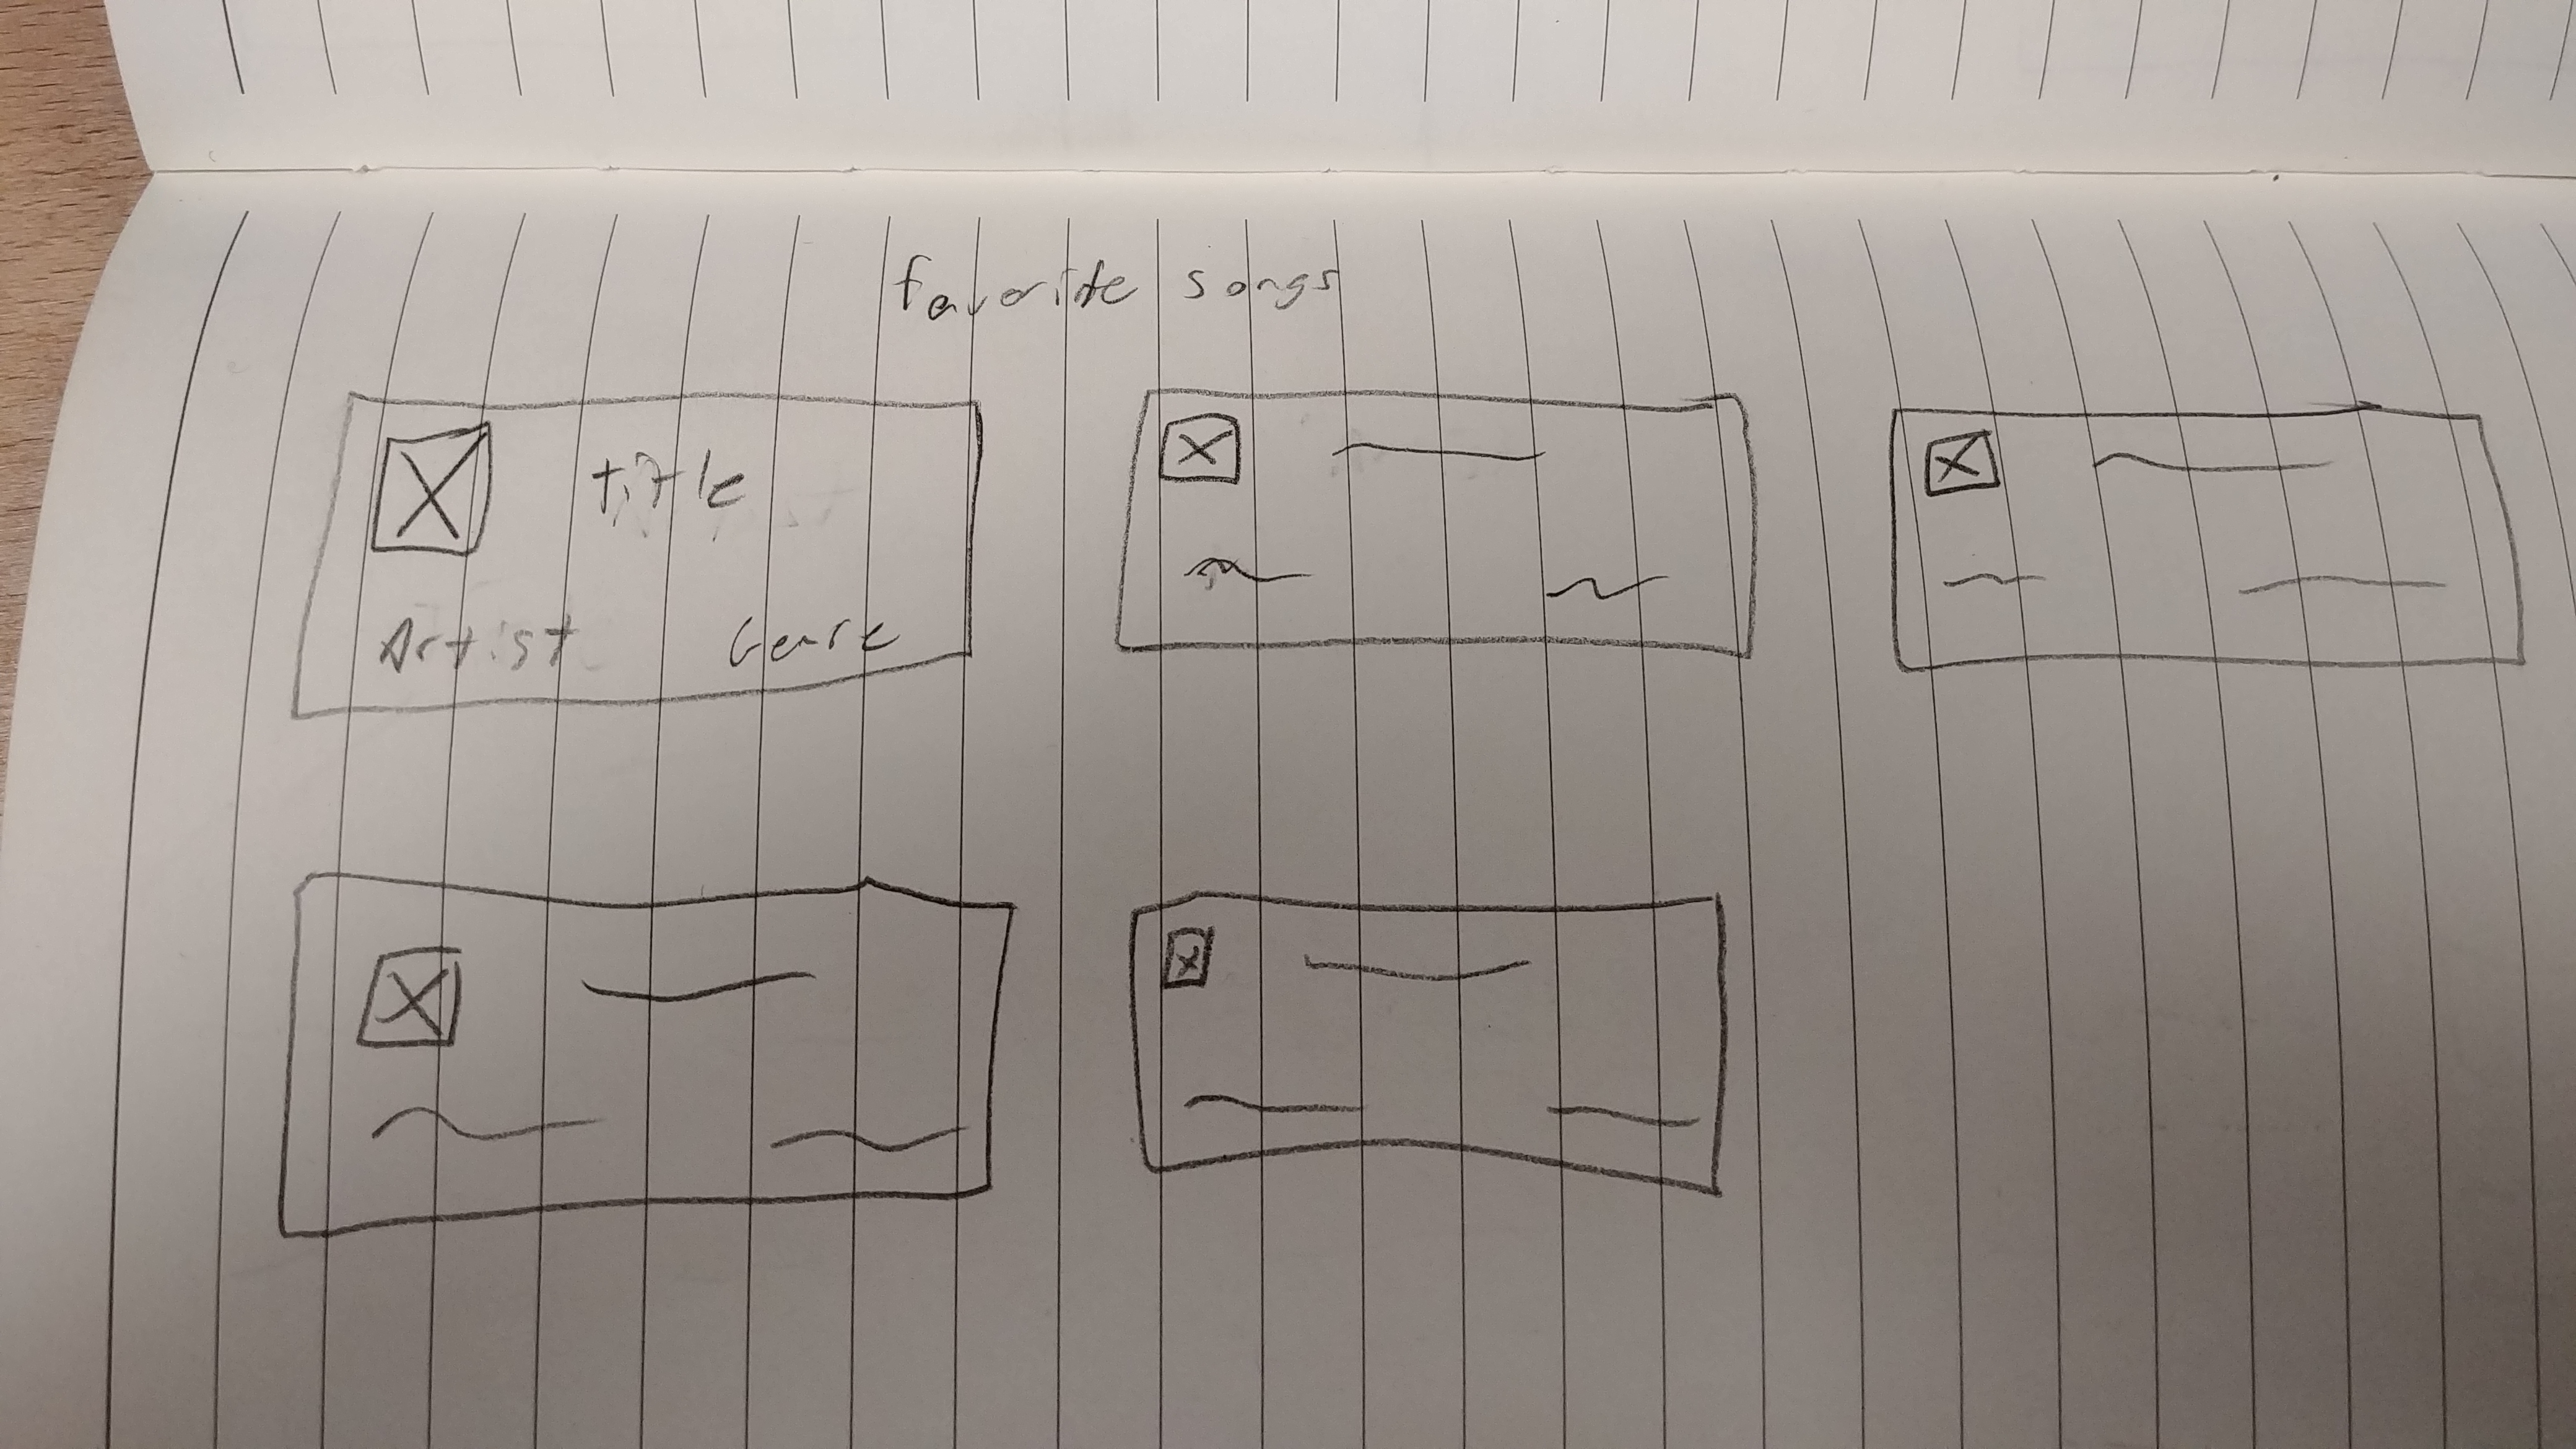 favorite songs
title
Artist Genre